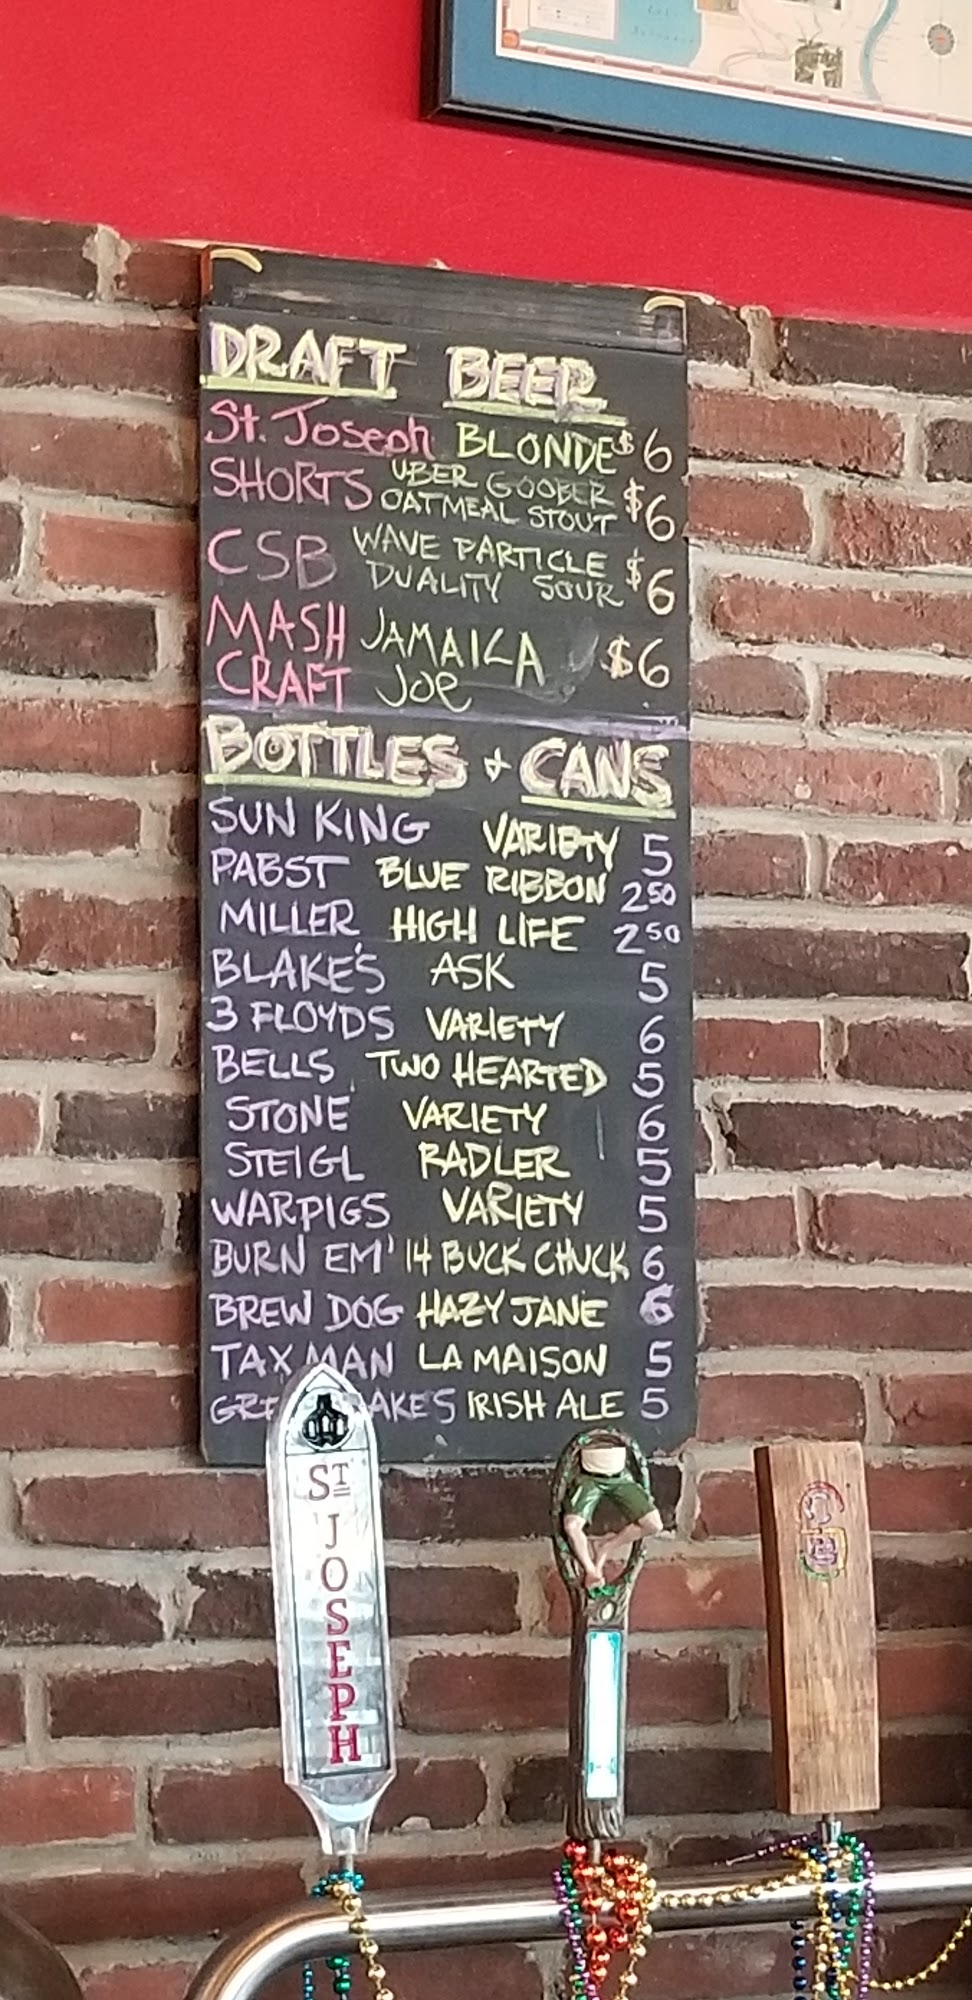 DRAFT BEER
St. Joseph BLONDE $6
SHORTS UBER GOOBER OATMEAL STOUT $6
CSB WAVE PARTICLE DUALITY SOUR $6
MASH CRAFT JAMAICA JOE $6
BOTTLES + CANS
SUN KING VARIETY 5
PABST BLUE RIBBON 2 50
MILLER HIGH LIFE 2 50
BLAKE'S ASK 5
3 FLOYDS VARIETY 6
BELLS TWO HEARTED 5
STONE VARIETY 6
STEIGL RADLER 5
WARPIGS VARIETY 5
BURN EM' 14 BUCK CHUCK 6
BREW DOG HAZY JANE 6
TAX MAN LA MAISON 5
IRISH ALE 5
ST JOSEPH